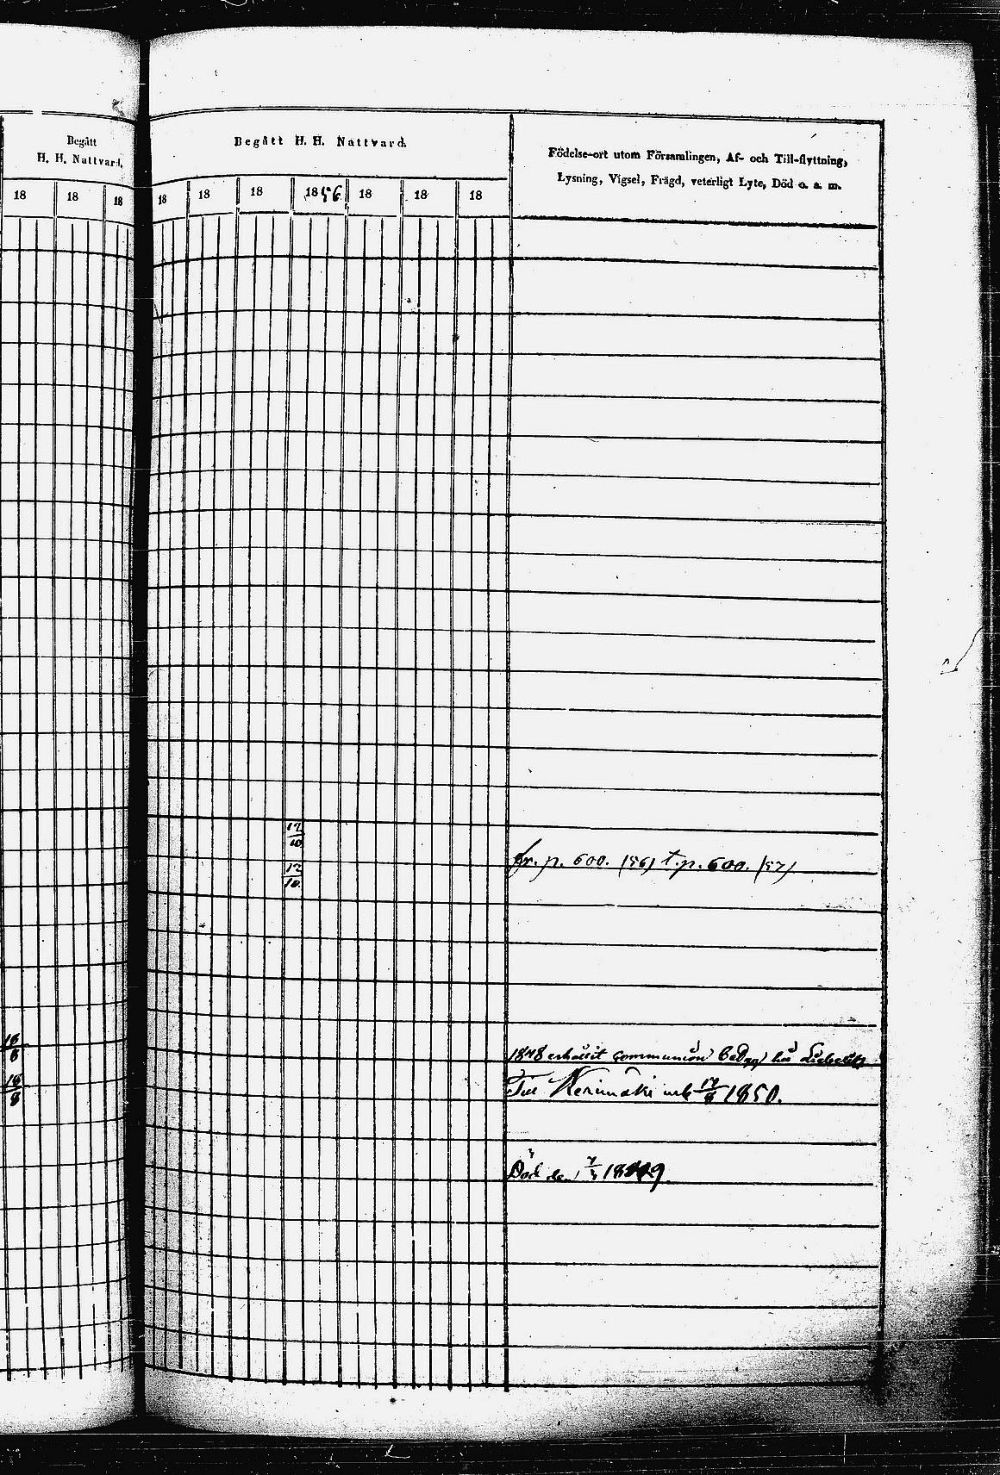 Begått
H. H. Nattvard.
18 18 18
Begått H. H. Nattvard.
18 18 18 1856 18 18 18
Födelse-ort utom Församlingen, Af- och Till-flyttning,
Lysning, Vigsel, Frägd, veterligt Lyte, Död o. a. m.
12/10
fr. p. 600. (56) t. p. 600. (57)
12/10
16/6
1848 erhållit communion
16/8
Till Kerimäki 1850.
Död den 7/3 1849